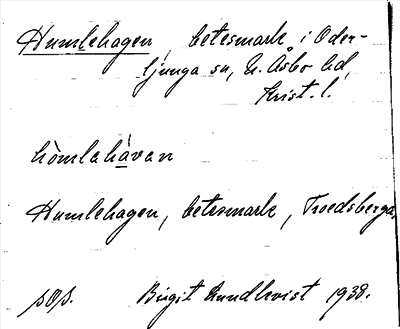 Humlehagen, betesmark i Oder-
ljunga sn, N. Åsbo hd,
Krist. l.
hòmlahàvan
Humlehagen, betesmark, Troedsberga,
sOs. Birgit Rundkvist 1938.